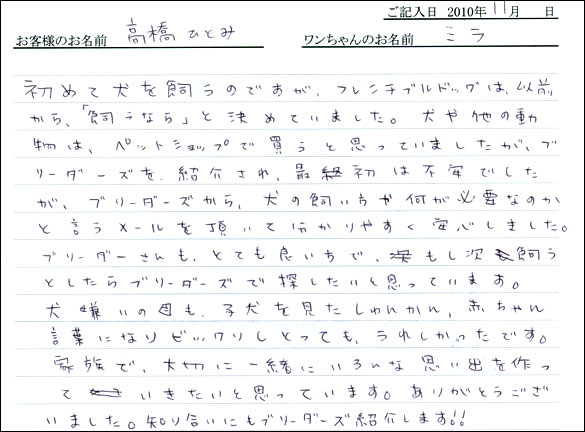 ご記入日 2010年 11月 日
お客様のお名前 高橋 ひとみ ワンちゃんのお名前 ミラ
初めて犬を飼うのですが、フレンチブルドッグは、以前
から、「飼うなら」と決めていました。犬や他の動
物は、ペットショップで買うと思っていましたが、ブ
リーダーズを、紹介され、最初は不安でした
が、ブリーダーズから、犬の飼い方や何が必要なのか
と言うメールを頂いて分かりやすく安心しました。
ブリーダーさんも、とても良い方で、もし次飼う
としたらブリーダーズで探したいと思っています。
犬嫌いの母も、子犬を見たしゅんかん、赤ちゃん
言葉になりビックリしとっても、うれしかったです。
家族で、大切に一緒にいろんな思い出を作っ
ていきたいと思っています。ありがとうござ
いました。知り合いにもブリーダーズ紹介します!!